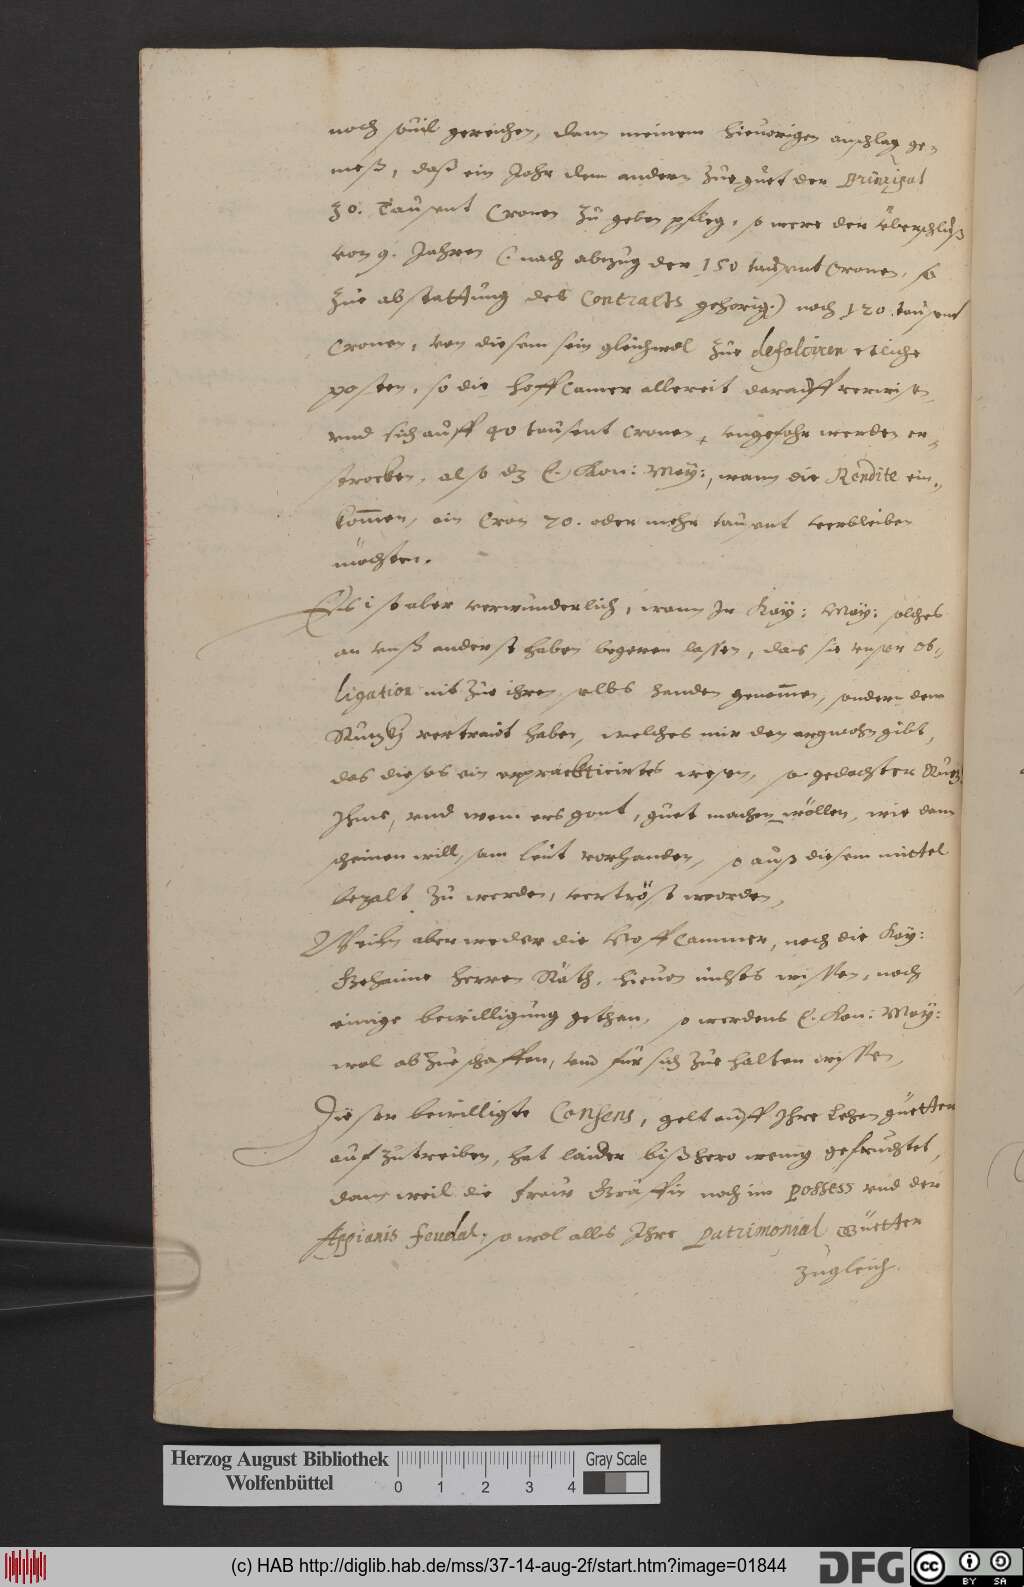 noch souil gereichen, dann meinem hieuorigen anschlag ge=
meß, daß ein Jahr dem andern zue guet der Prinzipal
30. Tausent Cronen zu geben pfleg, so were der vberschuß
von 9. Jahren (: nach abzug der 150 tausent Cronen, so
zue abstattung des Contracts gehorig:) noch 120. tausent
Cronen, von diesem sein gleichwol zue defalciren etliche
posten, so die hoffCamer allereit darauff verwisen,
vnd sich auff 40 tausent Cronen, vngefahr werden er=
strecken, also dz E. Kon: May:, wann die Rendite ein=
komen, ein Cron 70. oder mehr tausent verbleiben
möchten.
Es ist aber verwunderlich, wann Ir Kay: May: solches
an vnß anderst haben begeren lassen, das sie vnser ob=
ligation nit zue ihren selbs handen genomen, sondern dem
vertrawt haben, welches mir den argwohn gibt,
das dieses ein erpracticirtes wesen, so gedachter
Ihme, vnd wem ers gont, guet machen wöllen, wie dann
scheinen will, sam leut vorhanden, so auß diesem mittel
bezalt zu werden, vertröst worden,
Weiln aber weder die HoffCammer, noch die Kay:
Gehaime herren Räth, hieuon nichts wissen, noch
einige bewilligung gethan, so werdens E. Kon: May:
wol ab zueschaffen, vnd für sich zue halten wissen,
Dieser bewilligte Consens, gelt auff Ihre Lehen güetter
auf zutreiben, hat laider bißhero wenig gefruchtet,
dann weil die fraw Gräffin noch im Possess vnd der
Appianis feudal, so wol alls Ihre Patrimonial Güetter
zugleich.
Herzog August Bibliothek
Wolfenbüttel
0 1 2 3 4
Gray Scale
(c) HAB http://diglib.hab.de/mss/37-14-aug-2f/start.htm?image=01844
DFG
cc BY SA